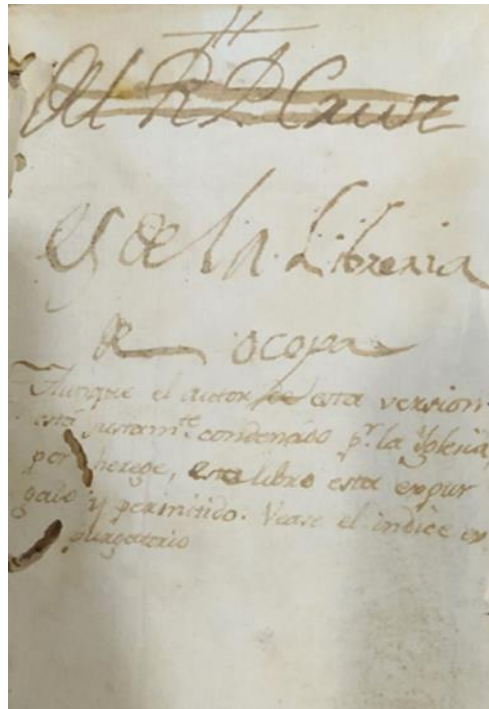 Al R. P. Cruz
es de la Libreria
de ocopa
Aunque el autor de esta version
está justamte. condenado pr. la Yglesia,
por herege, este libro esta expur
gado y permitido. Vease el indice ex
purgatorio